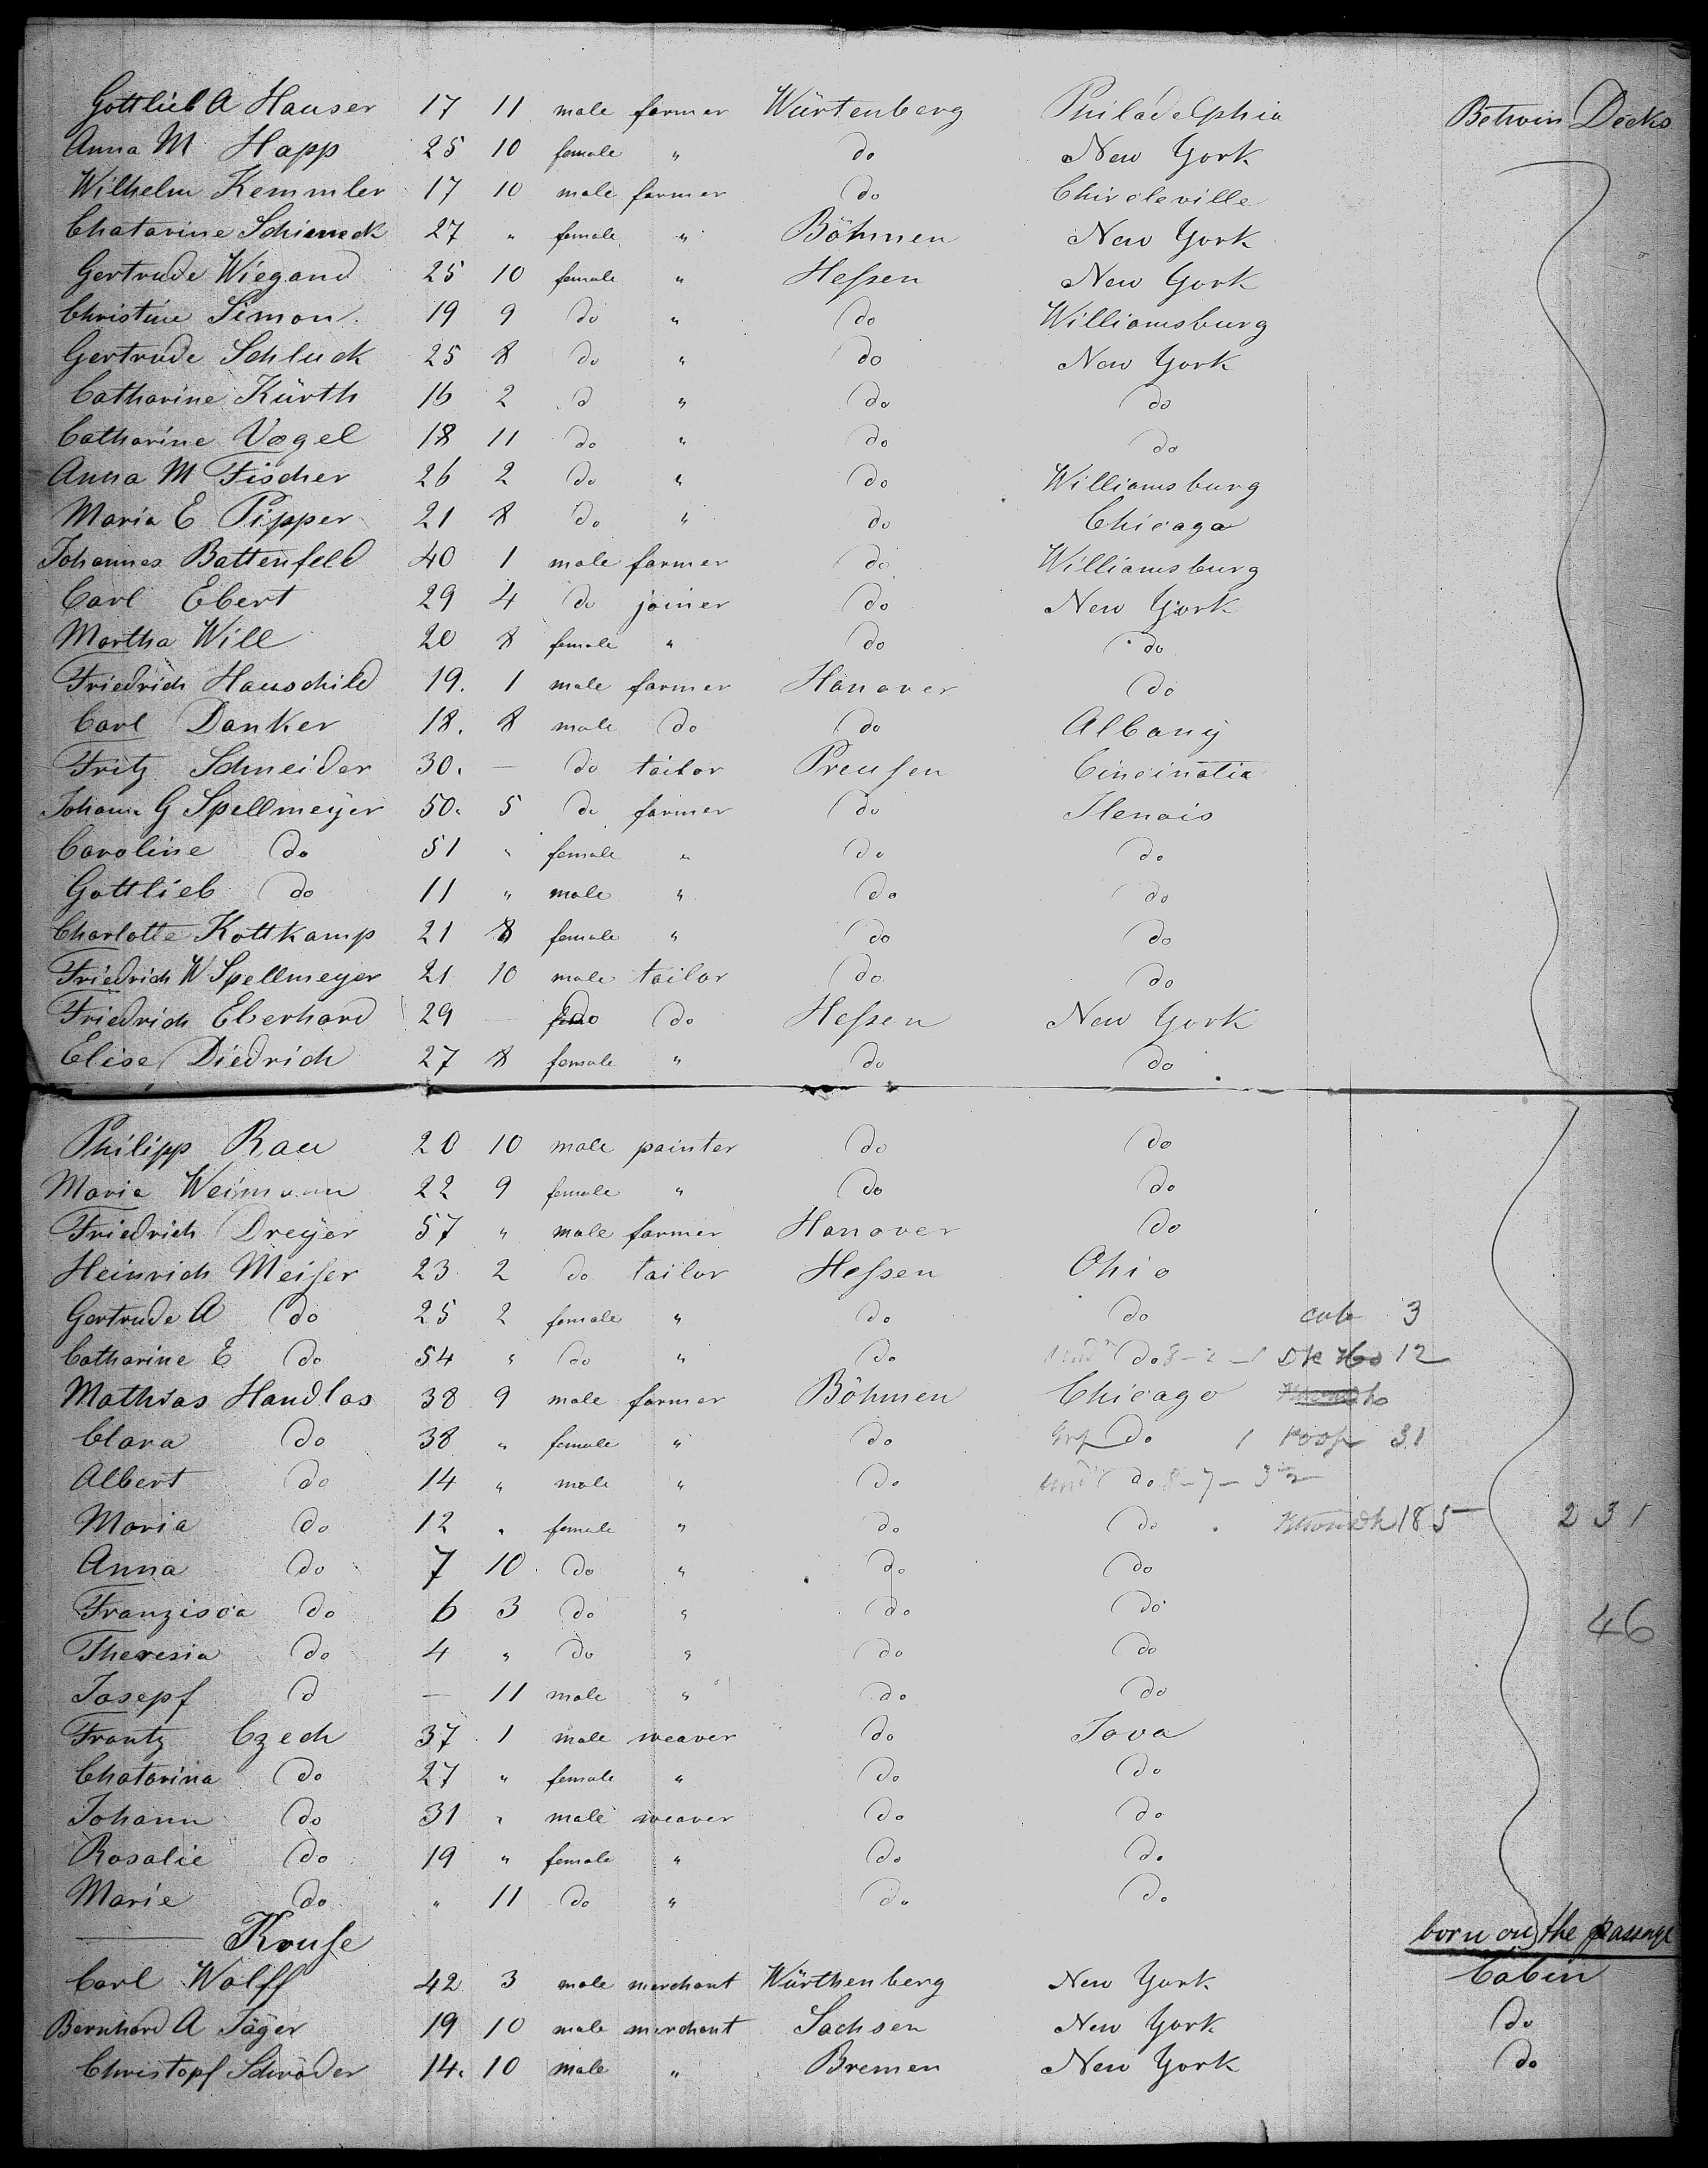 Gottlieb A Hauser 17 11 male farmer Würtenberg Philadelphia Betwin Decks
Anna M Happ 25 10 female " do New York
Wilhelm Kemmler 17 10 male farmer do Chircleville
Chatarine 27 " female " Böhmen New York
Gertrude Wiegand 25 10 female " Heſsen New York
Christine Simon. 19 9 do " do Williamsburg
Gertrude Schluck 25 8 do " do New York
Catharine Kürth 16 2 d " do do
Catharine Vogel 18 11 do " do do
Anna M Fischer 26 2 do " do Williamsburg
Maria E Pipper 21 8 do " do Chicago
Johannes Battenfeld 40 1 male farmer do Williamsburg
Carl Ebert 29 4 do joiner do New York
Martha Will 20 8 female " do do
Friedrich Hauschild 19. 1 male farmer Hanover do
Carl Danker 18. 8 male do do Albany
Fritz Schneider 30. — do tailor Preuſsen Cincinatia
Johann G Spellmeÿer 50. 5 do farmer do Ilenois
Caroline do 51 " female " do do
Gottlieb do 11 " male " do do
Charlotte Kottkamp 21 8 female " do do
Friedrich W Spellmeyer 21 10 male tailor do do
Friedrich Eberhard 29 — do do Heſsen New York
Elise Diedrich 27 8 female " do do
Philipp Rau 20 10 male painter do do
Maria Weimann 22 9 female " do do
Friedrich Dreÿer 57 " male farmer Hanover do
Heinrich Meiſser 23 2 do tailor Heſsen Ohio
Gertrude A do 25 2 female " do do cab 3
Catharine E do 54 " do " do do 12
Mathias Handlos 38 9 male farmer Böhmen Chicago
Clara do 38 " female " do do 1 31
Albert do 14 " male " do do
Maria do 12 " female " do do 185 231
Anna do 7 10 do " do do
Franzisca do 6 3 do " do do 46
Theresia do 4 " do " do do
Josepf d — 11 male " do do
Frantz Czech 37 1 male weaver do Iova
Chatarina do 27 " female " do do
Johann do 31 " male weaver do do
Rosalie do 19 " female " do do
Marie do " 11 do " do do
— Kruſe born on the passage
Carl Wolff 42 3 male merchant Würthenberg New York Cabin
Bernhard A Jäger 19 10 male merchant Sachsen New York do
Christopf Schröder 14. 10 male " Bremen New York do